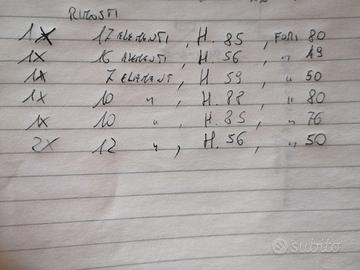 RUGOSTI
1X 17 ELEMENTI, H. 85, FORI 80
1X 16 ELEMENTI, H. 56, " 49
1X 7 ELEMENTI, H. 59, " 50
1X 10 ", H. 88, " 80
1X 10 ", H. 85, " 76
2X 12 ", H. 56, " 50
subito